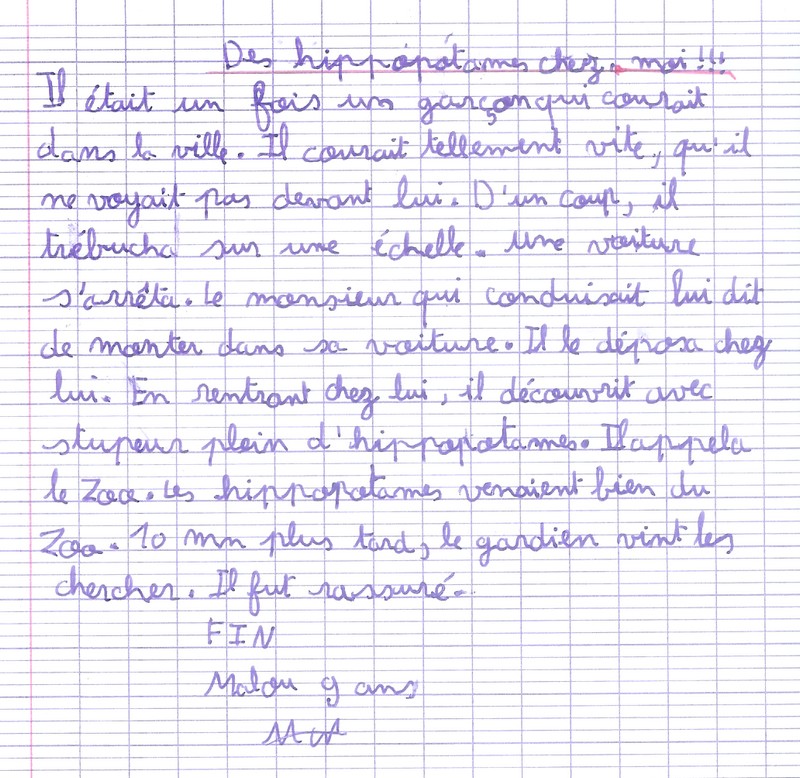 Des hippopotames chez moi !!!
Il était un fois un garçon qui courait
dans la ville. Il courait tellement vite, qu'il
ne voyait pas devant lui. D'un coup, il
trébucha sur une échelle. Une voiture
s'arrêta. Le monsieur qui conduisait lui dit
de monter dans sa voiture. Il le déposa chez
lui. En rentrant chez lui, il découvrit avec
stupeur plein d'hippopotames. Il appela
le Zoo. Les hippopotames venaient bien du
Zoo. 10 mn plus tard, le gardien vint les
chercher. Il fut rassuré.
FIN
Malou 9 ans